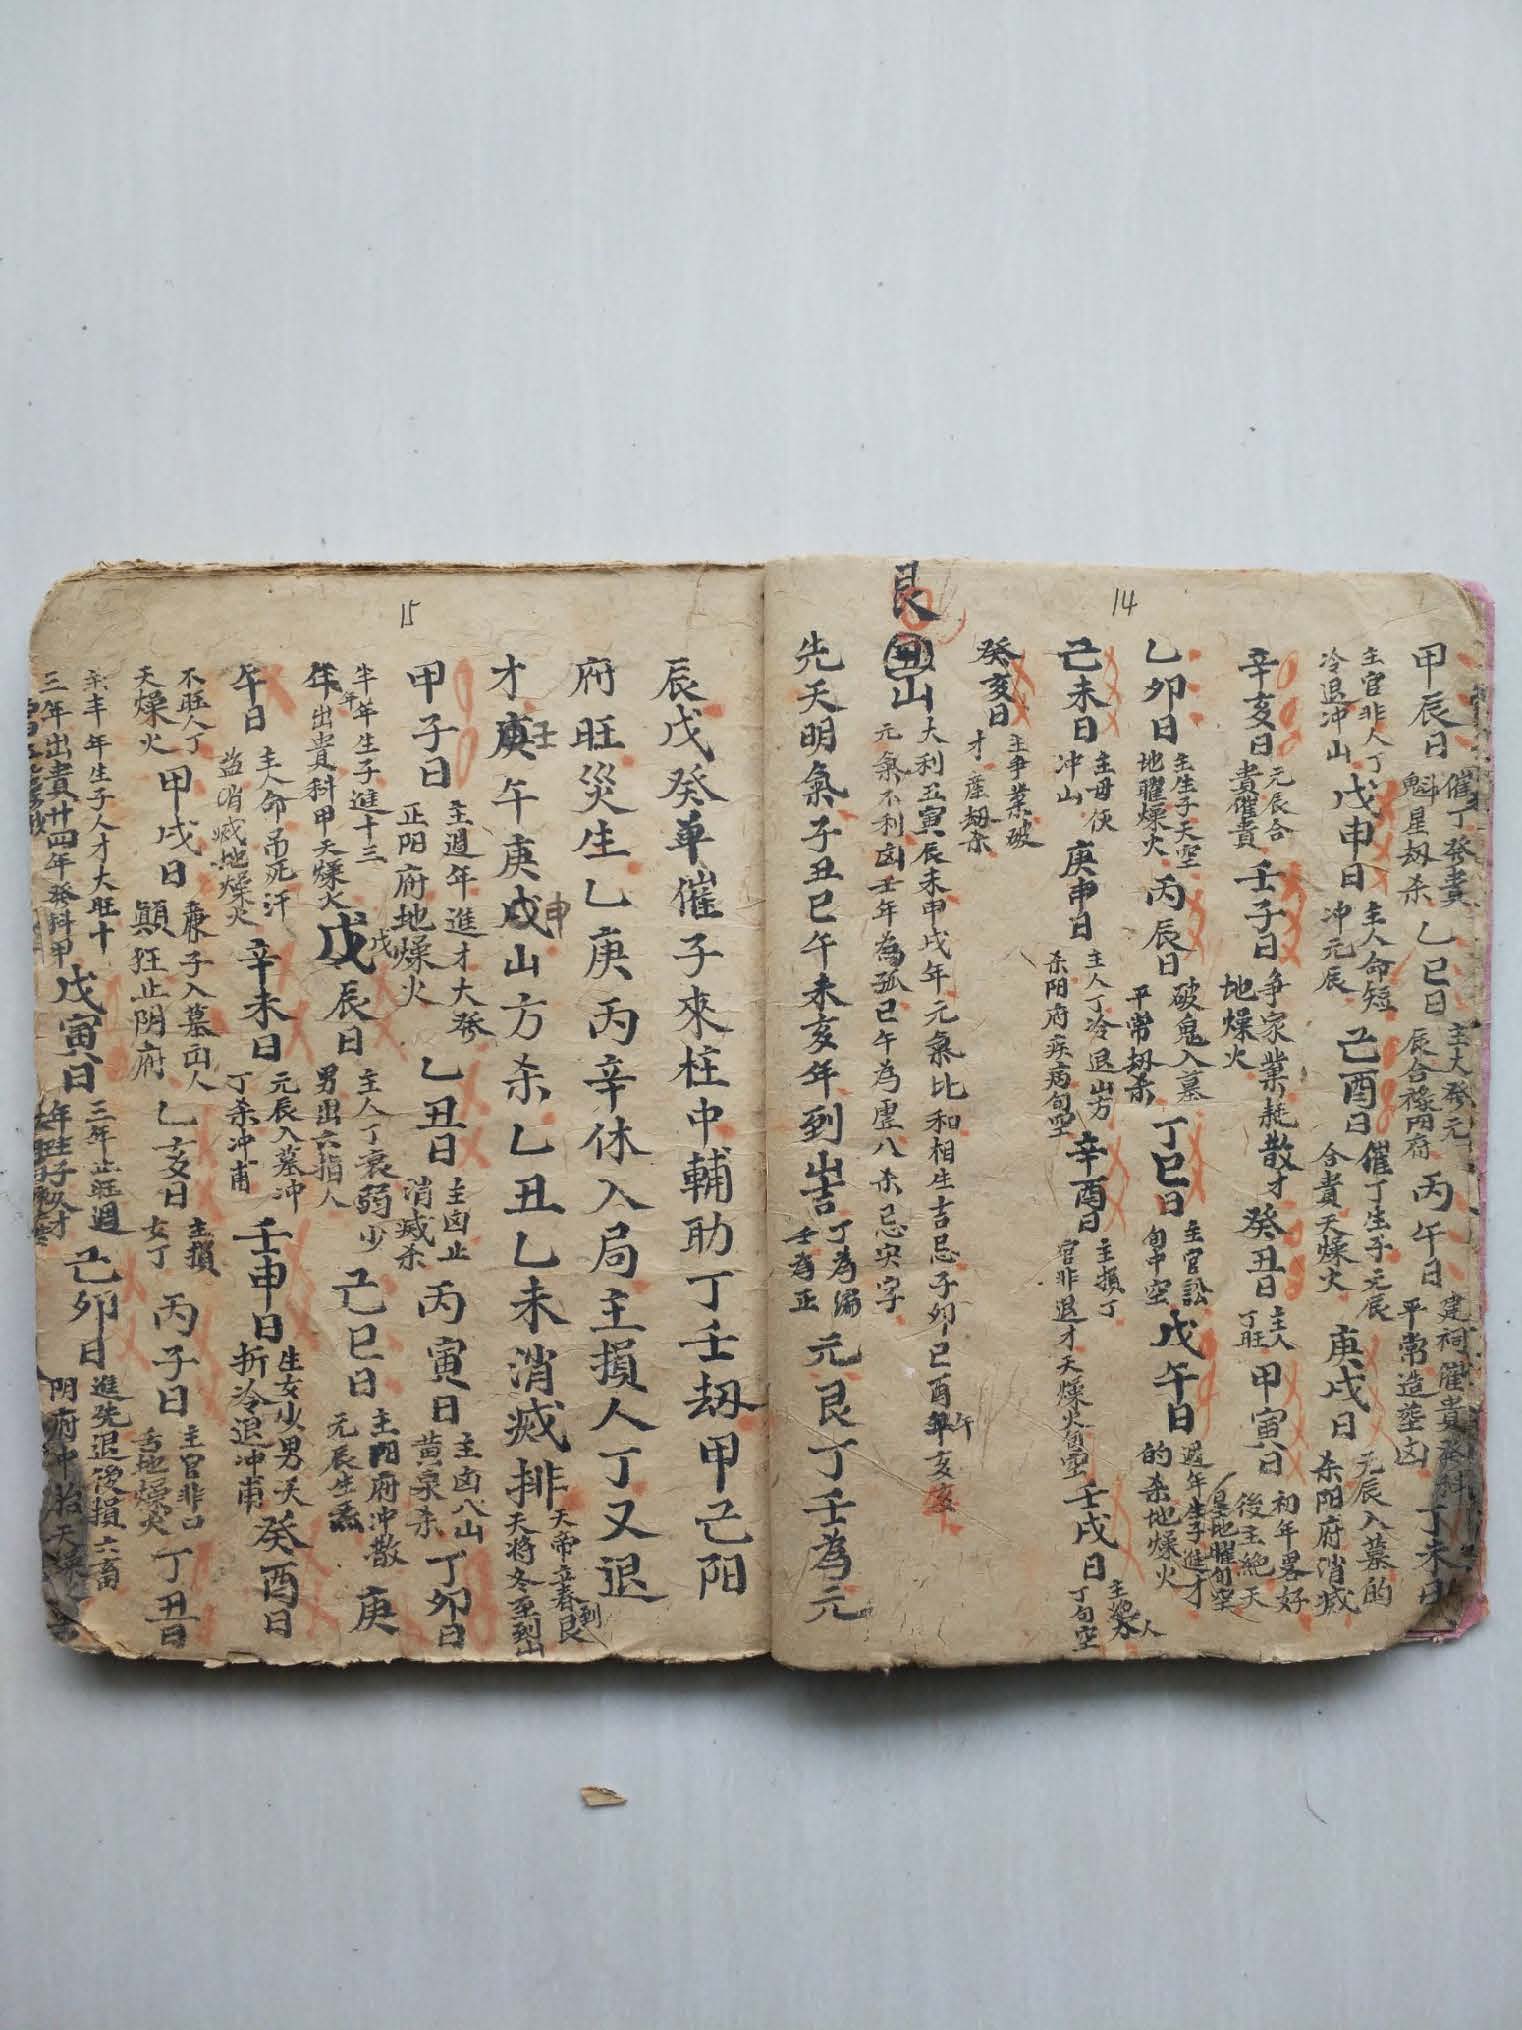 14
甲辰日 催丁發貴 魁星刼杀 乙巳日 主大發元 辰合祿阴府 丙午日 建祠催貴發科 平常造塟凶 丁未日
主官非人丁 冷退冲山 戊申日 主人命短 冲元辰 己酉日 催丁生子元辰 合貴天燥火 庚戌日 元辰入墓的 杀阳府消滅
辛亥日 元辰合 貴催貴 壬子日 争家業耗散才 地燥火 癸丑日 主人 丁旺 甲寅日 初年畧好 後主絶天
乙卯日 主生子天空 地曜燥火 丙辰日 破鬼入墓 平常刼杀 丁巳日 主官訟 旬中空 戊午日 過年生子進才 的杀地燥火
己未日 主毋伕 冲山 庚申日 主人丁冷退山方 杀阳府疾病旬空 辛酉日 主損丁 官非退才天燥火旬空 壬戌日 主
癸亥日 主争業破 才産刼杀
艮丑山 大利丑寅辰未申戌年元氣比和相生吉忌子卯巳酉午年亥
元氣不利凶壬年為孤己午為虛八杀忌宍字
先天明氣子丑巳午未亥年到山吉 丁為漏 壬為正 元艮丁壬為元
15
辰戊癸草催子來柱中輔助丁壬刼甲己阳
府旺災生乙庚丙辛休入局主損人丁又退
才庚壬午庚戌申山方杀乙丑乙未消滅排 天帝立春到艮 天将冬至到山
甲子日 主週年進才大發 正阳府地燥火 乙丑日 主凶止 消滅杀 丙寅日 主凶八山 黄泉杀 丁卯日
半年年生子進十三 年出貴科甲天燥火 戊辰日 主人丁衰弱少 男出六指人 己巳日 主阳府冲散 元辰生炁 庚
午日 主人命吊死汗 益消滅地燥火 辛未日 元辰入墓冲 丁杀冲甫 壬申日 生女少男夭 折冷退冲甫 癸酉日
不旺人丁 天燥火 甲戌日 康子入墓出人 顛狂止阴府 乙亥日 主損 女丁 丙子日 主官非口 舌地燥火 丁丑日
年生子人才大旺十 三年出貴廿四年發科甲 戊寅日 三年止旺週 己卯日 進先退後損六畜 阴府冲